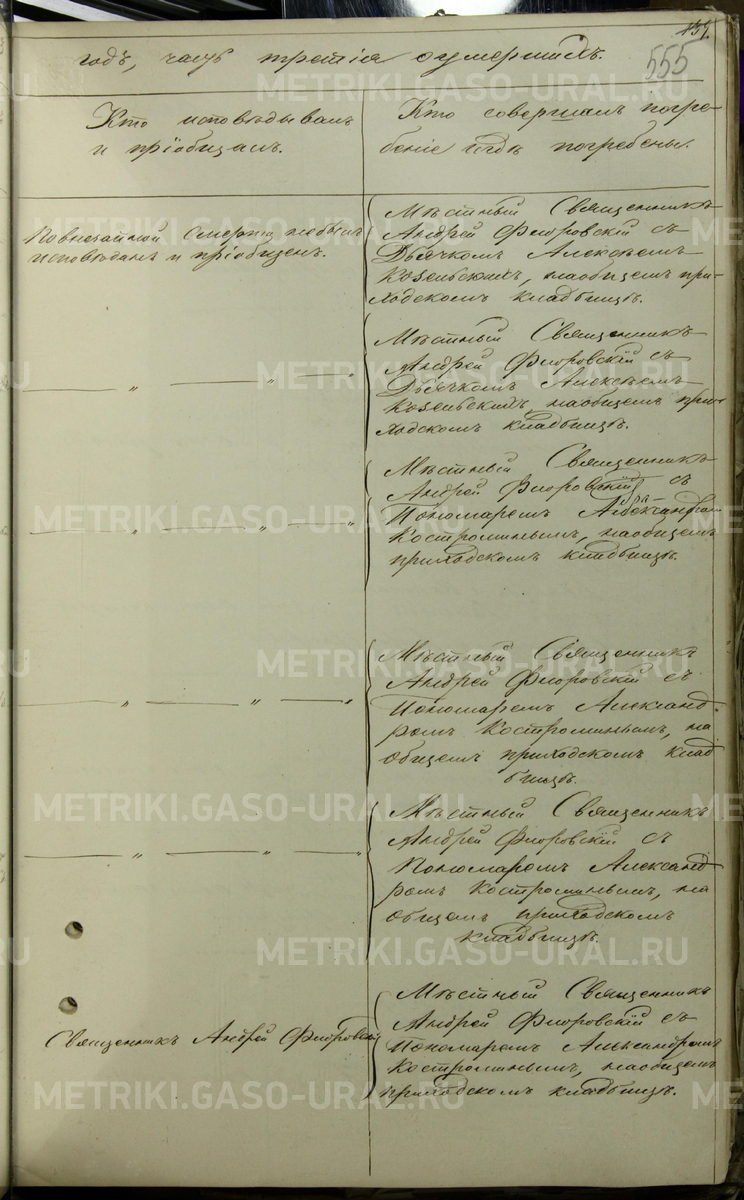 139.
555
годъ, часть третія о умершихъ.
Кто исповѣдывалъ
и пріобщалъ.
Кто совершалъ погре-
беніе и гдѣ погребены.
По внезапной смерти небылъ
исповѣданъ и пріобщенъ.
Мѣстный Священникъ
Андрей Флоровскій съ
Дьячкомъ Алексѣемъ
Козельскихъ, наобщемъ при-
ходскомъ кладбищѣ.
— „ — „ —
Мѣстный Священникъ
Андрей Флоровскій съ
Дьячкомъ Алексѣемъ
Козельскихъ, наобщемъ при-
ходскомъ кладбищѣ.
— „ — „ —
Мѣстный Священникъ
Андрей Флоровскій съ
Пономаремъ Александромъ
Костроминымъ, наобщемъ
приходскомъ кладбищѣ.
— „ — „ —
Мѣстный Священникъ
Андрей Флоровскій съ
Пономаремъ Александ-
ромъ Костроминымъ, на
общемъ приходскомъ клад
бищѣ.
— „ — „ —
Мѣстный Священникъ
Андрей Флоровскій съ
Пономаремъ Александ-
ромъ Костроминымъ, на
общемъ приходскомъ
кладбищѣ.
Священникъ Андрей Флоровскій
Мѣстный Священникъ
Андрей Флоровскій съ
Пономаремъ Александромъ
Костроминымъ, наобщемъ
приходскомъ кладбищѣ.
METRIKI.GASO-URAL.RU